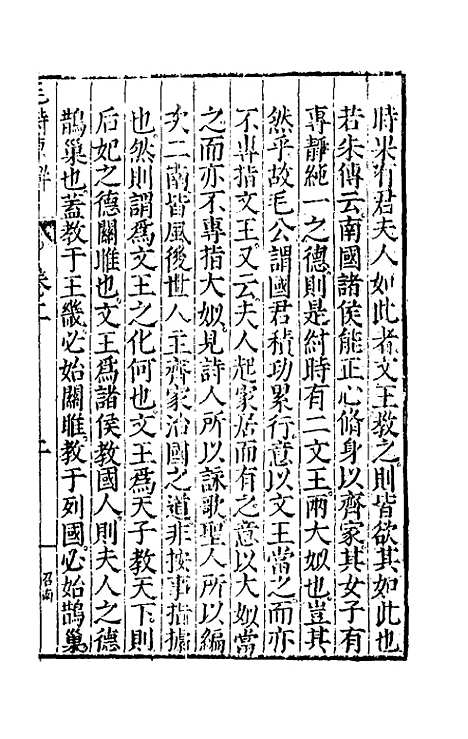 時未有君夫人如此者文王教之則皆欲其如此也
若朱傳云南國諸侯能正心脩身以齊家其女子有
專靜純一之德則是紂時有二文王兩大姒也豈其
然乎故毛公謂國君積功累行意以文王當之而亦
不專指文王又云夫人起家居而有之意以大姒當
之而亦不專指大姒見詩人所以詠歌聖人所以編
次二南皆風後世人主齊家治國之道非按事指據
也然則謂爲文王之化何也文王爲天子教天下則
后妃之德關雎也文王爲諸侯教國人則夫人之德
鵲巢也蓋教于王畿必始關雎教于列國必始鵲巢
毛詩原解
卷二
二
召南